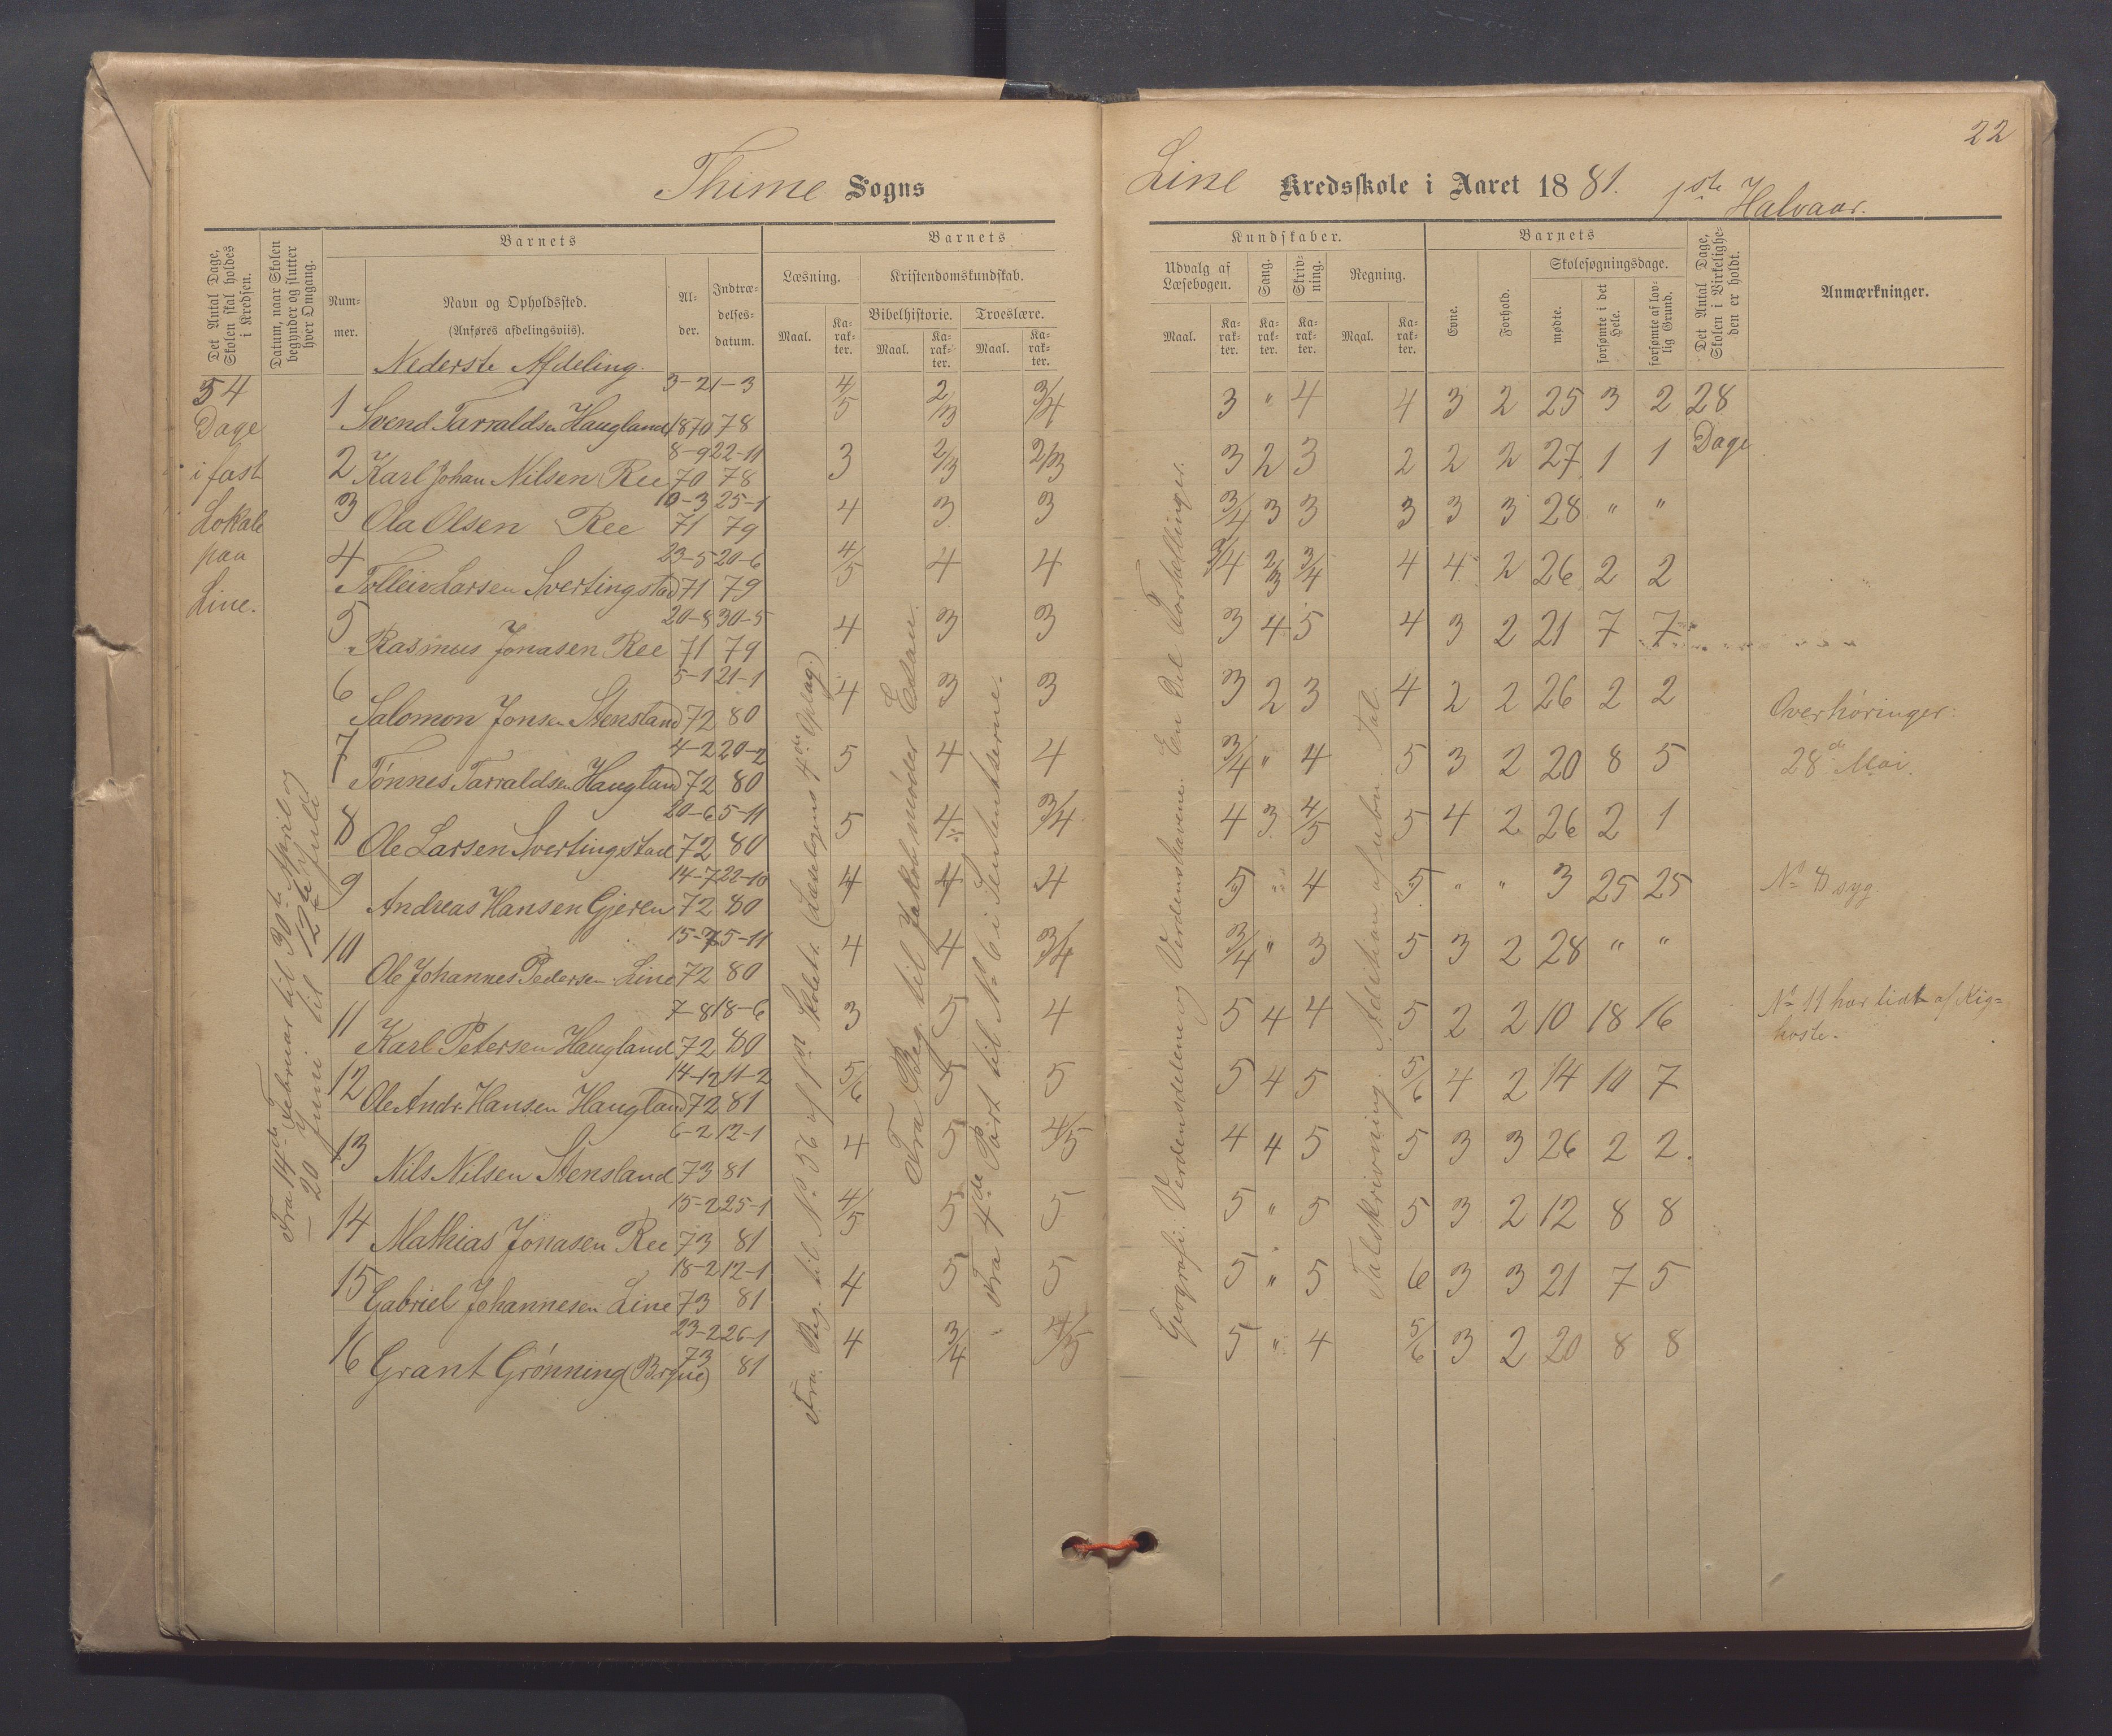 22
Thime Sogns
Line Kredsskole i Aaret 1881. 1ste Halvaar.
Det Antal Dage, Skolen skal holdes i Kredsen.
Datum, naar Skolen begynder og slutter hver Omgang.
Barnets
Nummer.
Navn og Opholdssted.
(Anføres afdelingsviis).
Alder.
Indtrædelsesdatum.
Barnets
Læsning.
Maal.
Karakter.
Kristendomskundskab.
Bibelhistorie.
Maal.
Karakter.
Troeslære.
Maal.
Karakter.
Kundskaber.
Udvalg af Læsebogen.
Maal.
Karakter.
Sang.
Karakter.
Skrivning.
Karakter.
Regning.
Maal.
Karakter.
Barnets
Evne.
Forhold.
Skolesøgningsdage.
mødte.
forsømte i det Hele.
forsømte af lovlig Grund.
Det Antal Dage, Skolen i Virkeligheden er holdt.
Anmærkninger.
Nederste Afdeling.
54
Dage
i fast
Lokale
paa
Line.
Fra 14de Februar til 30te April og
— 20 Juni til 12te Juli
1 Svend Tarraldsen Haugland 3-2 1870 21-3 78 4/5 2/3 3/4 3 " 4 4 3 2 25 3 2 28 Dage
2 Karl Johan Nilsen Ree 8-9 70 22-11 78 3 2/3 2/3 3 2 3 2 2 2 27 1 1
3 Ola Olsen Ree 10-3 71 25-1 79 4 3 3 3/4 3 3 3 3 3 28 " "
4 Tolleiv Larsen Svertingstad 23-5 71 20-6 79 4/5 4 4 3/4 2/3 3/4 4 4 2 26 2 2
5 Rasmus Jonasen Ree 20-8 71 30-5 79 4 3 3 3 4 5 4 3 2 21 7 7
6 Salomon Jonsen Stensland 5-1 72 21-1 80 4 3 3 3 2 3 4 2 2 26 2 2
7 Tønnes Tarraldsen Haugland 4-2 72 20-2 80 5 4 4 3/4 " 4 5 3 2 20 8 5
8 Ole Larsen Svertingstad 20-6 72 5-11 80 5 4÷ 3/4 4 3 4/5 5 4 2 26 2 1
9 Andreas Hansen Gjeren 14-7 72 22-10 80 4 4 4 5 " 4 5 " " 3 25 25
10 Ole Johannes Pedersen Line 15-7 72 5-11 80 4 4 3/4 3/4 " 3 5 3 2 28 " "
11 Karl Petersen Haugland 7-8 72 18-6 80 3 5 4 5 4 4 5 2 2 10 18 16
12 Ole Andr. Hansen Haugland 14-12 72 11-2 81 5/6 5 5 5 4 5 5/6 4 2 14 10 7
13 Nils Nilsen Stensland 6-2 73 12-1 81 4 5 4/5 4 4 5 5 3 3 26 2 2.
14 Mathias Jonasen Ree 15-2 73 25-1 81 4/5 5 5 5 " 5 5 3 2 12 8 8
15 Gabriel Johannesen Line 18-2 73 12-1 81 4 5 5 5 " 5 6 3 3 21 7 5
16 Grant Grønning (Bryne) 23-2 73 26-1 81 4 3/4 4/5 5 " 4 5/6 3 2 20 8 8
Fra Beg. til No 36 af 1ste Skoletr. (Læsebogens 4de Oplag.)
Fra Beg. til Jakob møder Esau.
Fra 4de Part til No 6 i Sentenserne.
Geografi: Verdensdelene og Verdenshavene. En Del Fortællinger.
Talskrivning. Addition af ubn. Tal.
Overhøringer:
28de Mai.
No 8 syg
No 11 har lidt af Kig=
hoste.